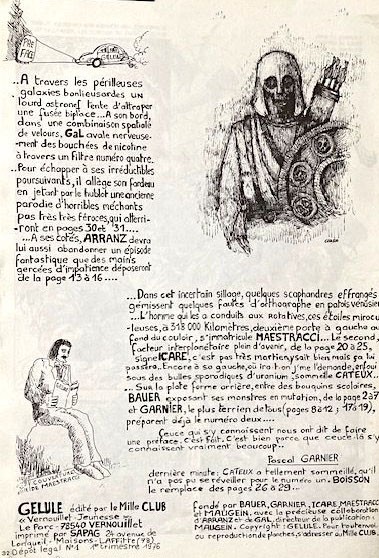 PRÉ
FACE
GELULE
...A travers les périlleuses
galaxies banlieusardes un
lourd astronef tente d'attraper
une fusée biplace... A son bord,
dans une combinaison spatiale
de velours, GAL avale nerveuse-
-ment des bouchées de nicotine
à travers un filtre numéro quatre.
..Pour échapper à ses irréductibles
poursuivants, il allège son fardeau
en jetant par le hublot une ancienne
parodie d'horribles méchants
pas très très féroces, qui atterri-
ront en pages 30 et 31....
...A ses cotés, ARRANZ devra
lui aussi abandonner un épisode
fantastique que des mains
gercées d'impatience déposeront
de la page 13 à 16....
...Dans cet incertain sillage, quelques scaphandres effrangés
gémissent quelques fautes d'orthographe en patois vénusien
...L'homme qui les a conduits aux rotatives, ces étoiles mirocu-
-leuses, à 318 000 Kilomètres, deuxième porte à gauche au
fond du couloir, s'immatricule MAESTRACCI... Le second,
facteur interplanétaire plein d'avenir, de la page 20 à 25,
signe ICARE, c'est pas très martien, y sait bien, mais ça lui
passera. Encore à sa gauche, où ira t'on j'me l'demande, enfoui
sous des bulles sporadiques d'uranium, sommeille CATEUX...
...Sur la plate forme arrière, entre des bouquins scolaires,
BAUER exposant ses monstres en mutation, de la page 2 à 7
et GARNIER, le plus terrien de tous (pages 8 à 12 ; 17 à 19),
préparent déjà le numéro deux....
Ceuce qui s'y connaissent nous ont dit de faire
une préface. C'est fait. C'est bien parce que ceuce là s'y
connaissent vraiment beaucoup..
Pascal GARNIER
dernière minute: CATEUX a tellement sommeillé, qu'il
n'a pas pu se réveiller pour le numéro un. BOISSON
le remplace des pages 26 à 29...
COUVERTURE
DE MAESTRACCI
GELULE édité par le Mille CLUB
« Vernouillet - Jeunesse »
Le Parc - 78540 VERNOUILLET
imprimé par SAPAG 24 avenue de
Longueil - Maisons-LAFFITTE (78)
32 Dépôt légal N°1 1er trimestre 1976
Fondé par BAUER, GARNIER, ICARE, MAESTRACCI
et MAUGEIN, avec la précieuse collaboration
d'ARRANZ et de GAL. directeur de la publication:
J. MAUGEIN. Copyright: GELULE. Pour toute envoi
ou reproduction de planches, s'adresser au Mille CLUB.